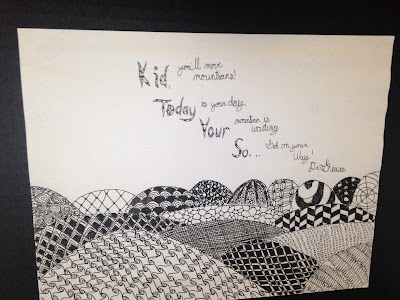 Kid, you'll move
mountains!
Today is your day.
Your mountain is
waiting
So... Get on your
Way!
Dr. Seuss